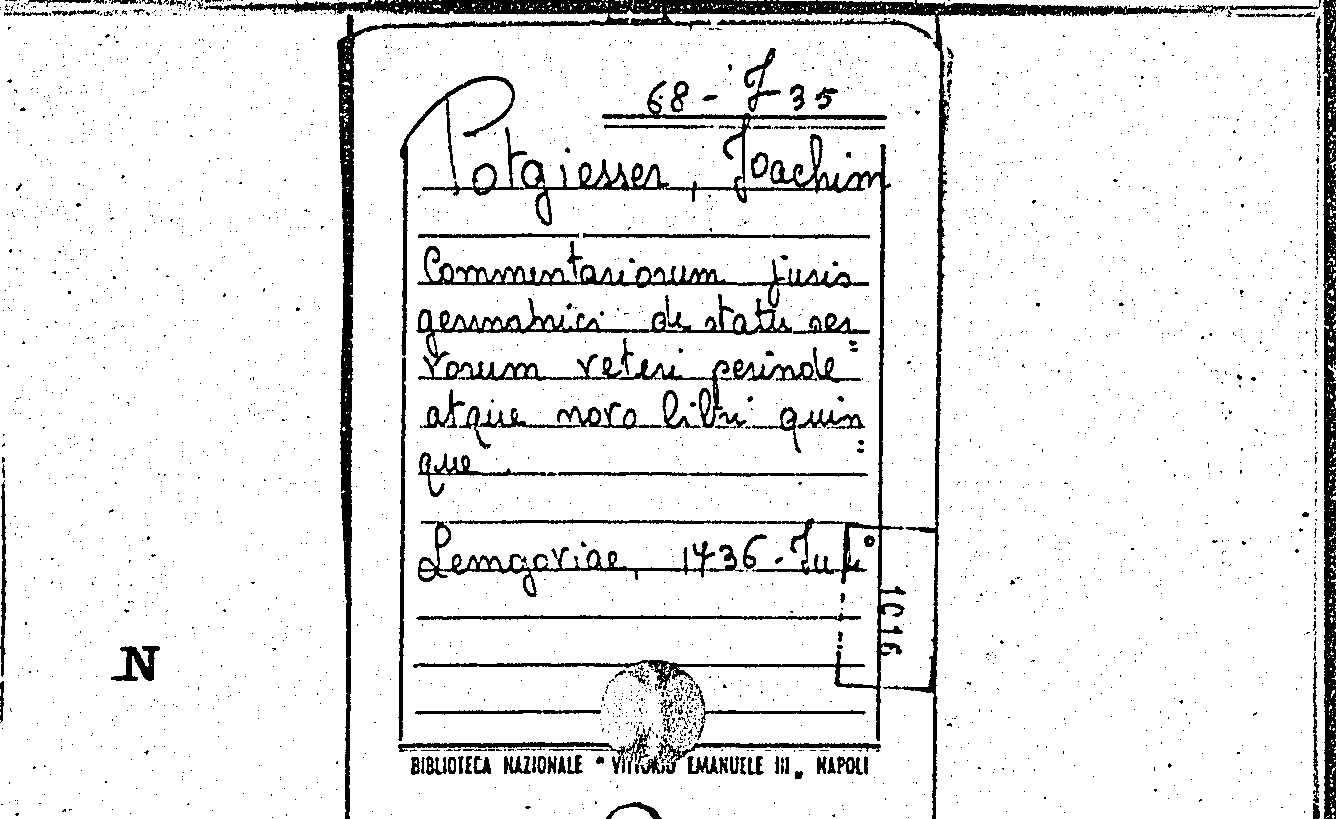 68 - J 35
Potgiesser, Joachim
Commentariorum juris
germanici de statu ser=
vorum veteri perinde
atque novo libri quin=
que.
Lemgoviae, 1736 - In 4°
1016
N
BIBLIOTECA NAZIONALE "VITTORIO EMANUELE III" NAPOLI